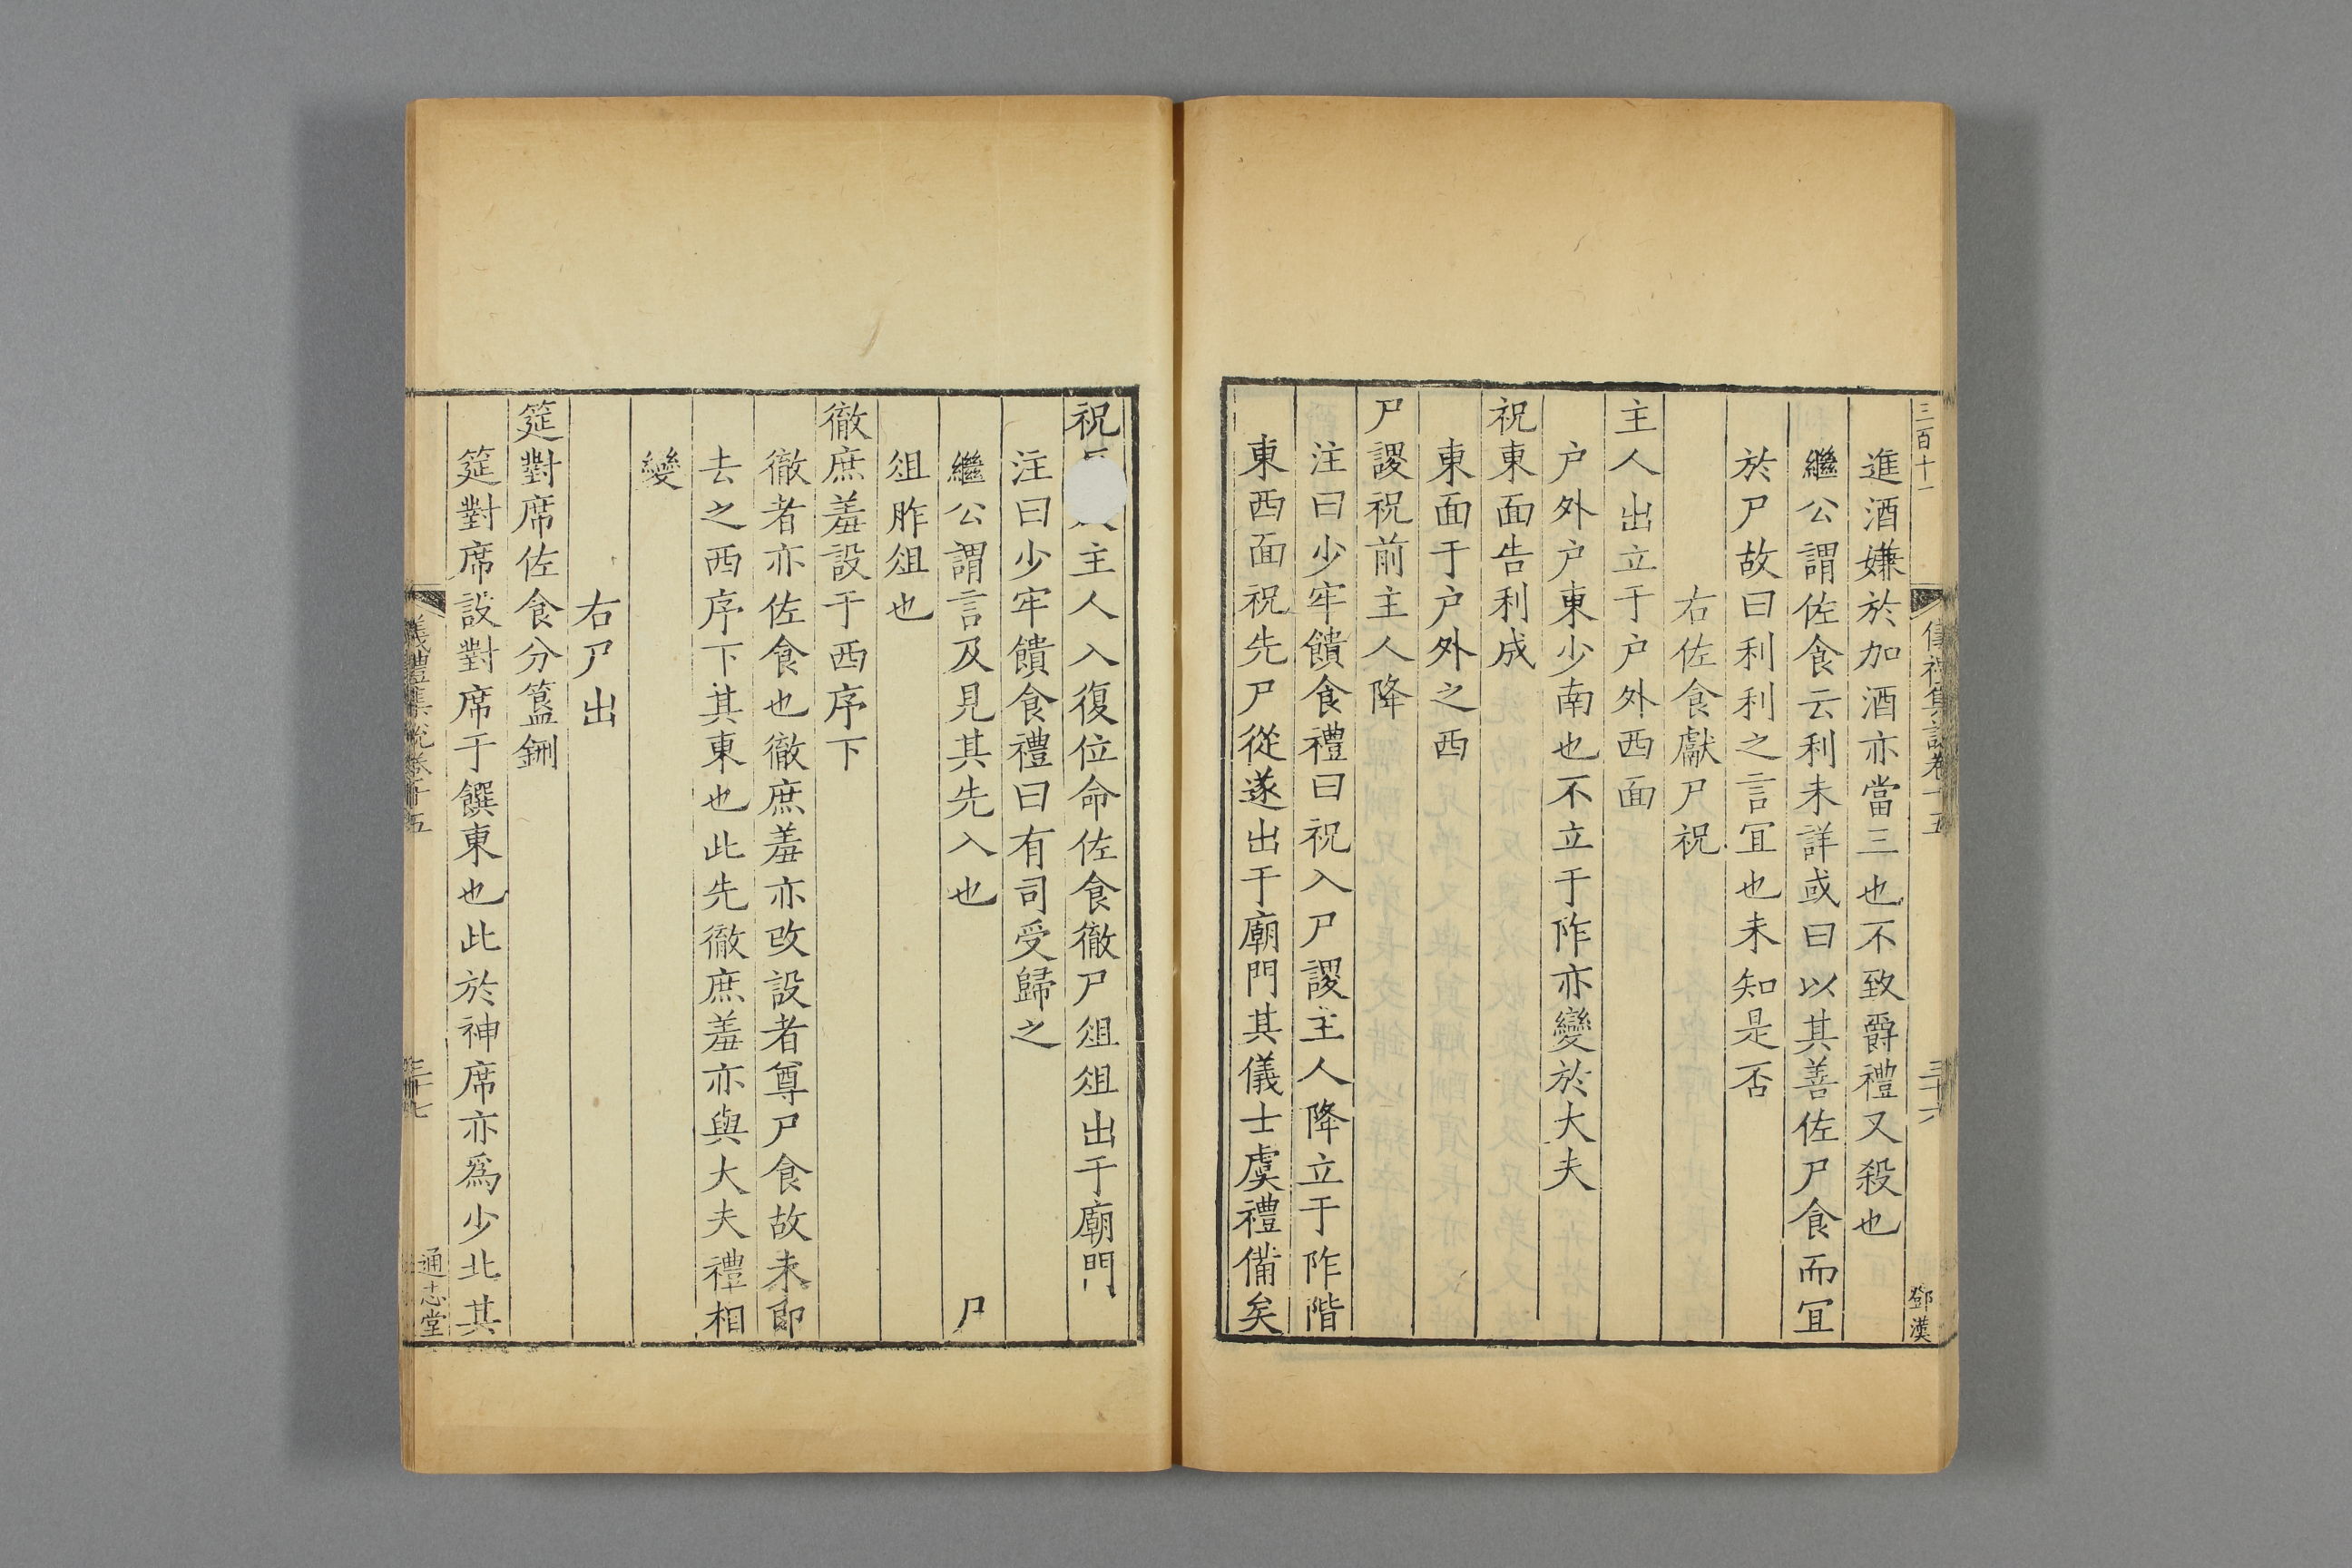 三百十一
儀禮集說卷十五
三十六
鄧漢
進酒嫌於加酒亦當三也不致爵禮又殺也
繼公謂佐食云利未詳或曰以其善佐尸食而宜
於尸故曰利利之言宜也未知是否
右佐食獻尸祝
主人出立于户外西面
户外户東少南也不立于阼亦變於大夫
祝東面告利成
東面于户外之西
尸謖祝前主人降
注曰少牢饋食禮曰祝入尸謖主人降立于阼階
東西面祝先尸從遂出于廟門其儀士虞禮備矣
祝主人入復位命佐食徹尸俎俎出于廟門
注曰少牢饋食禮曰有司受歸之
繼公謂言及見其先入也 尸
俎胙俎也
徹庶羞設于西序下
徹者亦佐食也徹庶羞亦改設者尊尸食故未即
去之西序下其東也此先徹庶羞亦與大夫禮相
變
右尸出
筵對席佐食分簋鉶
筵對席設對席于饌東也此於神席亦爲少北其
儀禮集說卷十五
三十七
通志堂